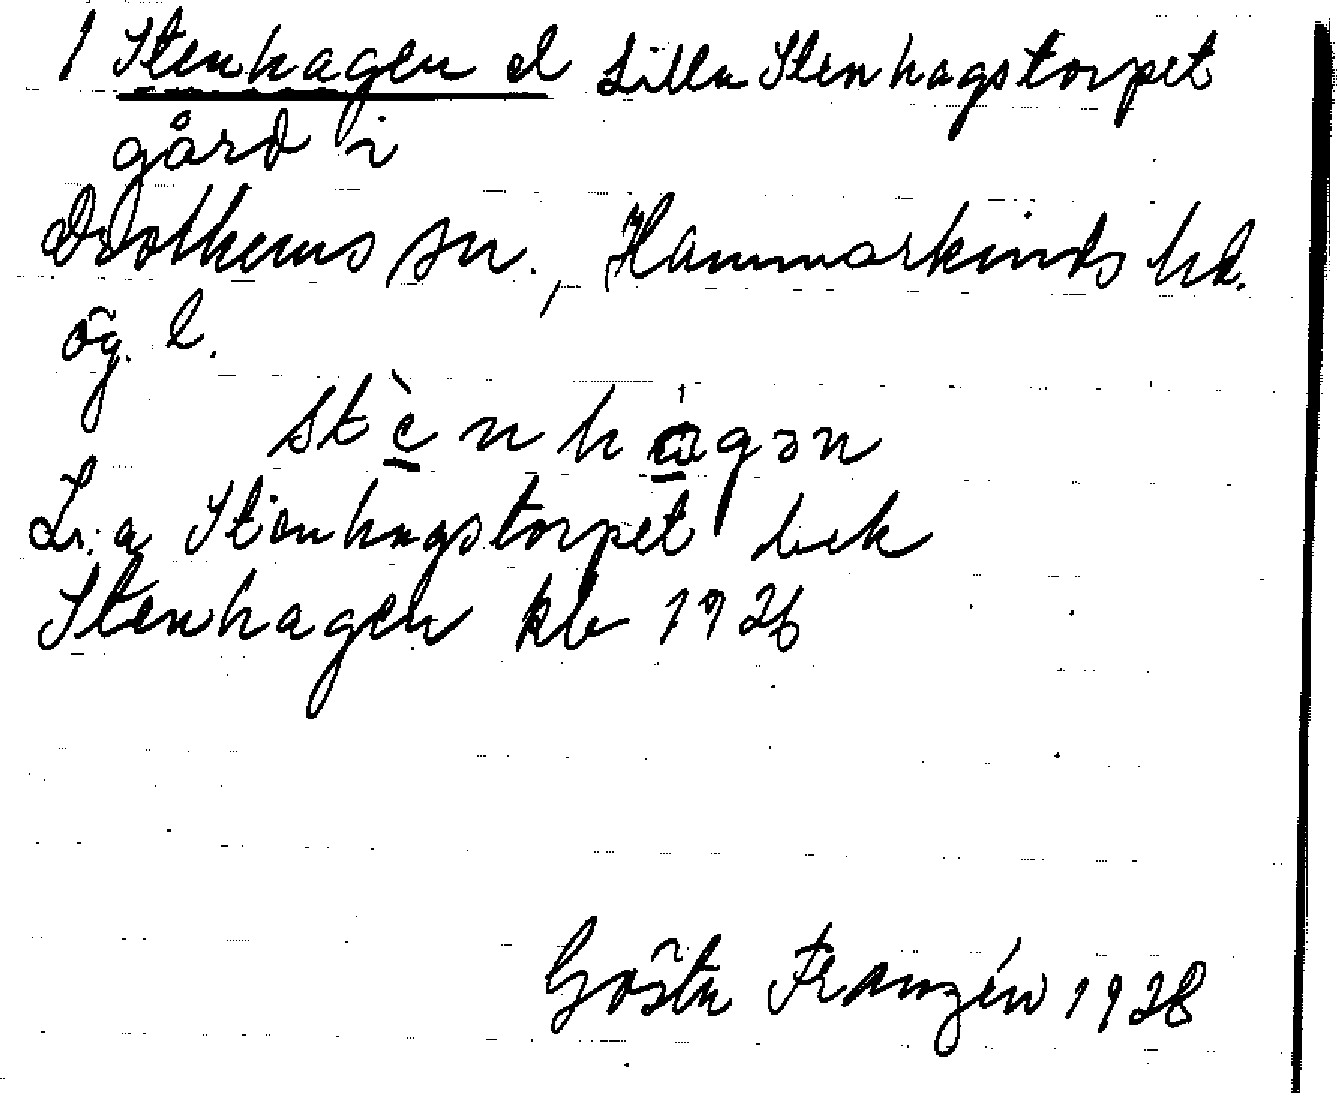 1 Stenhagen el Lilla Stenhagstorpet
gård i
Drothems sn., Hammarkinds hd.
Ög. l.
stènhágən
L:a Stenhagstorpet bek
Stenhagen kb 1926
Gösta Franzén 1928